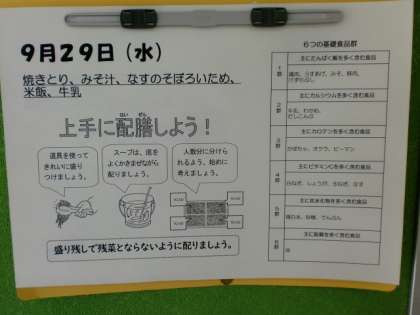 9月29日（水）
焼きとり、みそ汁、なすのそぼろいため、
米飯、牛乳
上手に配膳しよう！
はい ぜん
道具を使って
きれいに盛り
つけましょう。
スープは、底を
よくかきまぜながら
配りましょう。
人数分に分けら
れるよう、始めに
考えましょう。
盛り残して残菜とならないように配りましょう。
6つの基礎食品群
1群
主にたんぱく質を多く含む食品
鶏肉、うすあげ、みそ、豚肉、
2群
主にカルシウムを多く含む食品
牛乳、わかめ、
だしこんぶ
3群
主にカロテンを多く含む食品
かぼちゃ、オクラ、ピーマン
4群
主にビタミンCを多く含む食品
白ねぎ、しょうが、玉ねぎ、なす
5群
主に炭水化物を多く含む食品
精白米、砂糖、でんぷん
6群
主に脂質を多く含む食品
油